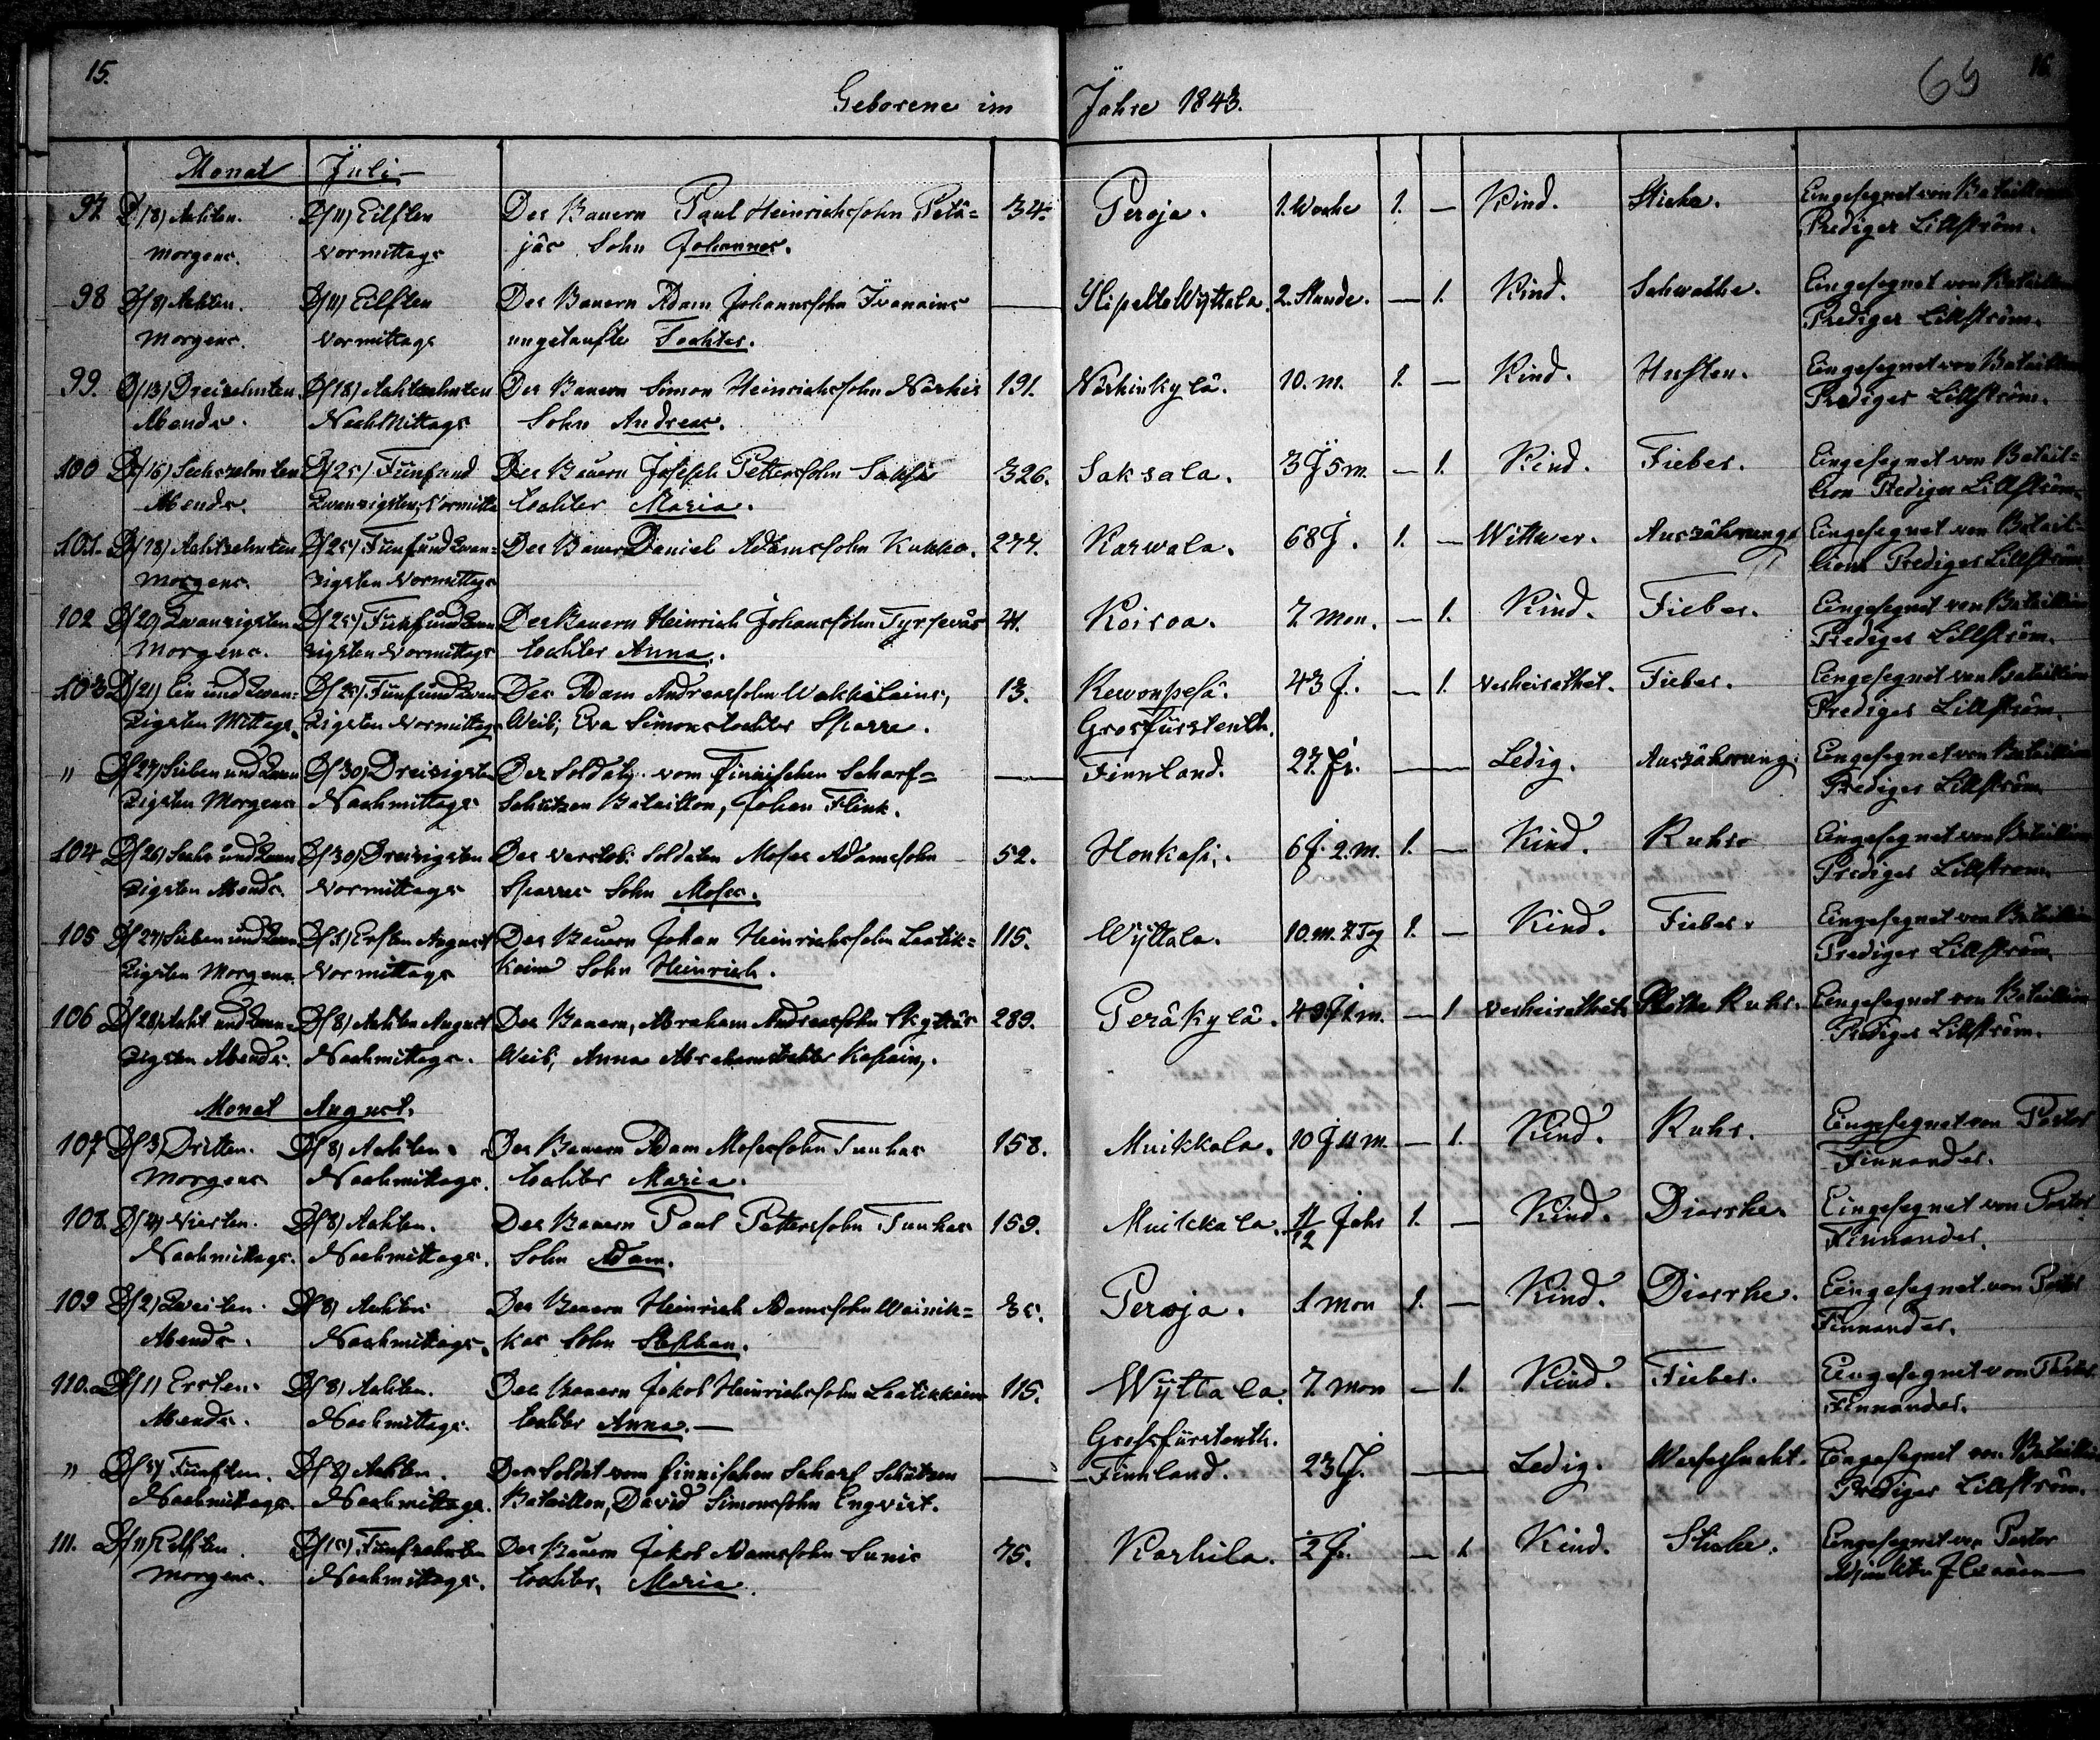 15.
16.
65
Geborene im Jahre 1843.
Monat Juli
97. D/8/ Achten. D/11/ Eilften Des Bauern Paul Heinrichssohn Petä= 34. Peroja. 1. Woche 1. — Kind. Stiche. Eingesegnet von Bataillons
Morgens. Vormittags jäs Sohn Johannes. Prediger Lillström.
98 D/8/ Achten. D/11/ Eilften Des Bauern Adam Johannssohn Iwanains — Ylipelto Wyttala. 2. Stunde. — 1. Kind. Schwäche. Eingesegnet von Bataillons
Morgens. Vormittags ungetaufte Tochter. Prediger Lillström.
99. D/13/ Dreizehnten D/18/ Achtzehnten Des Bauern Simon Heinrichssohn Närhis 191. Närhinkylä. 10. m. 1. — Kind. Husten. Eingesegnet von Bataillons
Abends. Nachmittags Sohn Andreas. Prediger Lillström.
100 D/16/ Sechszehnten D/25/ Fünfund Des Bauern Joseph Petterssohn Saksa 326. Saksala. 3J 5m. — 1. Kind. Fieber. Eingesegnet von Batail=
Abends. Zwanzigsten Vormitta tochter Maria. lion Prediger Lillström.
101. D/18/ Achtzehnten D/25/ Fünfundzwan= Der Bauer Daniel Adamssohn Kukko. 277. Karwala. 68J. 1. — Wittwer. Auszährung. Eingesegnet von Batail=
Morgens. zigsten Vormittags lions Prediger Lillström
102 D/20/ Zwanzigsten D/25/ Fünfundzwan Des Bauern Heinrich Johanssohn Tyrsewäs 41. Koiroa. 7 Mon. — 1. Kind. Fieber. Eingesegnet von Bataillions
Morgens. zigsten Vormittags tochter Anna. Prediger Lillström.
103 D/21/ Ein und Zwan= D/25/ Fünfundzwan Des Adam Andreassohn Wakkilains, 13. Rewonpesä. 43 J. — 1. verheirathet. Fieber. Eingesegnet von Bataillions
zigsten Mittags. zigsten Vormittags Weib, Eva Simonstochter Sparre. Prediger Lillström.
Grosfürstenth.
" D/27/ Sieben und Zwan D/30/ Dreisigsten Der Soldat vom finnischen Scharf= — Finnland. 27. J. — Ledig. Auszährung. Eingesegnet von Bataillions
zigsten Morgens Nachmittags Schützen Bataillon, Johan Flink. Prediger Lillström.
104 D/26/ Sechs und Zwan D/30/ Dreisigsten Des verstob. Soldaten Moses Adamssohn 52. Honkasi. 6J. 2.m. 1. — Kind. Ruhr. Eingesegnet von Bataillions
zigsten Abends. Vormittags Sparres Sohn Moses. Prediger Lillström.
105 D/27/ Sieben und Zwan D/1/ Ersten August Des Bauern Johan Heinrichssohn Laatik= 115. Wyttala. 10. m. 7 Tag 1. — Kind. Fieber. Eingesegnet von Bataillions
zigsten Morgens. Vormittags kains Sohn Heinrich. Prediger Lillström.
106 D/28/ Acht und Zwan= D/8/ Achten August Des Bauern, Abraham Andreassohn Skyttäs 289. Peräkylä. 49 J 1 m. — 1 verheirathet. Rothe Ruhr. Eingesegnet von Bataillions
zigsten Abends. Nachmittags. Weib, Anna Abrahamstochter Kapain. Prediger Lillström.
Monat August.
107 D/3/ Dritten. D/8/ Achten. Des Bauern Adam Mosessohn Tunkas 158. Muikkala. 10 J 11 m. — 1. Kind. Ruhr. Eingesegnet von Pastor
Morgens Nachmittags. tochter Maria. Finnander.
108. D/4/ Vierten. D/8/ Achten. Des Bauern Paul Petterssohn Tunkas 159. Muikkala. 11/12 Jahr 1. — Kind. Diarrhe. Eingesegnet von Pastor
Nachmittags. Nachmittags. Sohn Adam. Finnander.
109 D/2/ Zweiten. D/8/ Achten Des Bauern Heinrich Adamssohn Wainik= 35. Peroja. 1 Mon 1. — Kind. Diarrhe. Eingesegnet von Pastor
Abends. Nachmittags. kas Sohn Stephan. Finnander.
110. D/1/ Ersten. D/8/ Achten. Des Bauern Jakob Heinrichssohn Laatikkains 115. Wyttala. 7. Mon — 1. Kind. Fieber. Eingesegnet von Pastor
Abends. Nachmittags. tochter Anna. — Finnander.
Grosfürstenth.
" D/5/ Fünften. D/8/ Achten. Der Soldat vom finnischen Scharf Schützen — Finnland. 23 J. — Ledig. Wassersucht. Eingesegnet von Bataillions
Nachmittags. Nachmittags. Bataillon, David Simonssohn Engvist. Prediger Lillström.
111. D/11/ Eilften. D/15/ Fünfzehnten Des Bauern Jakob Adamssohn Sunis 75. Karhila. 2 J. — 1 Kind. Stiche. Eingesegnet von Pastor
Morgens. Nachmittags. tochter, Maria.